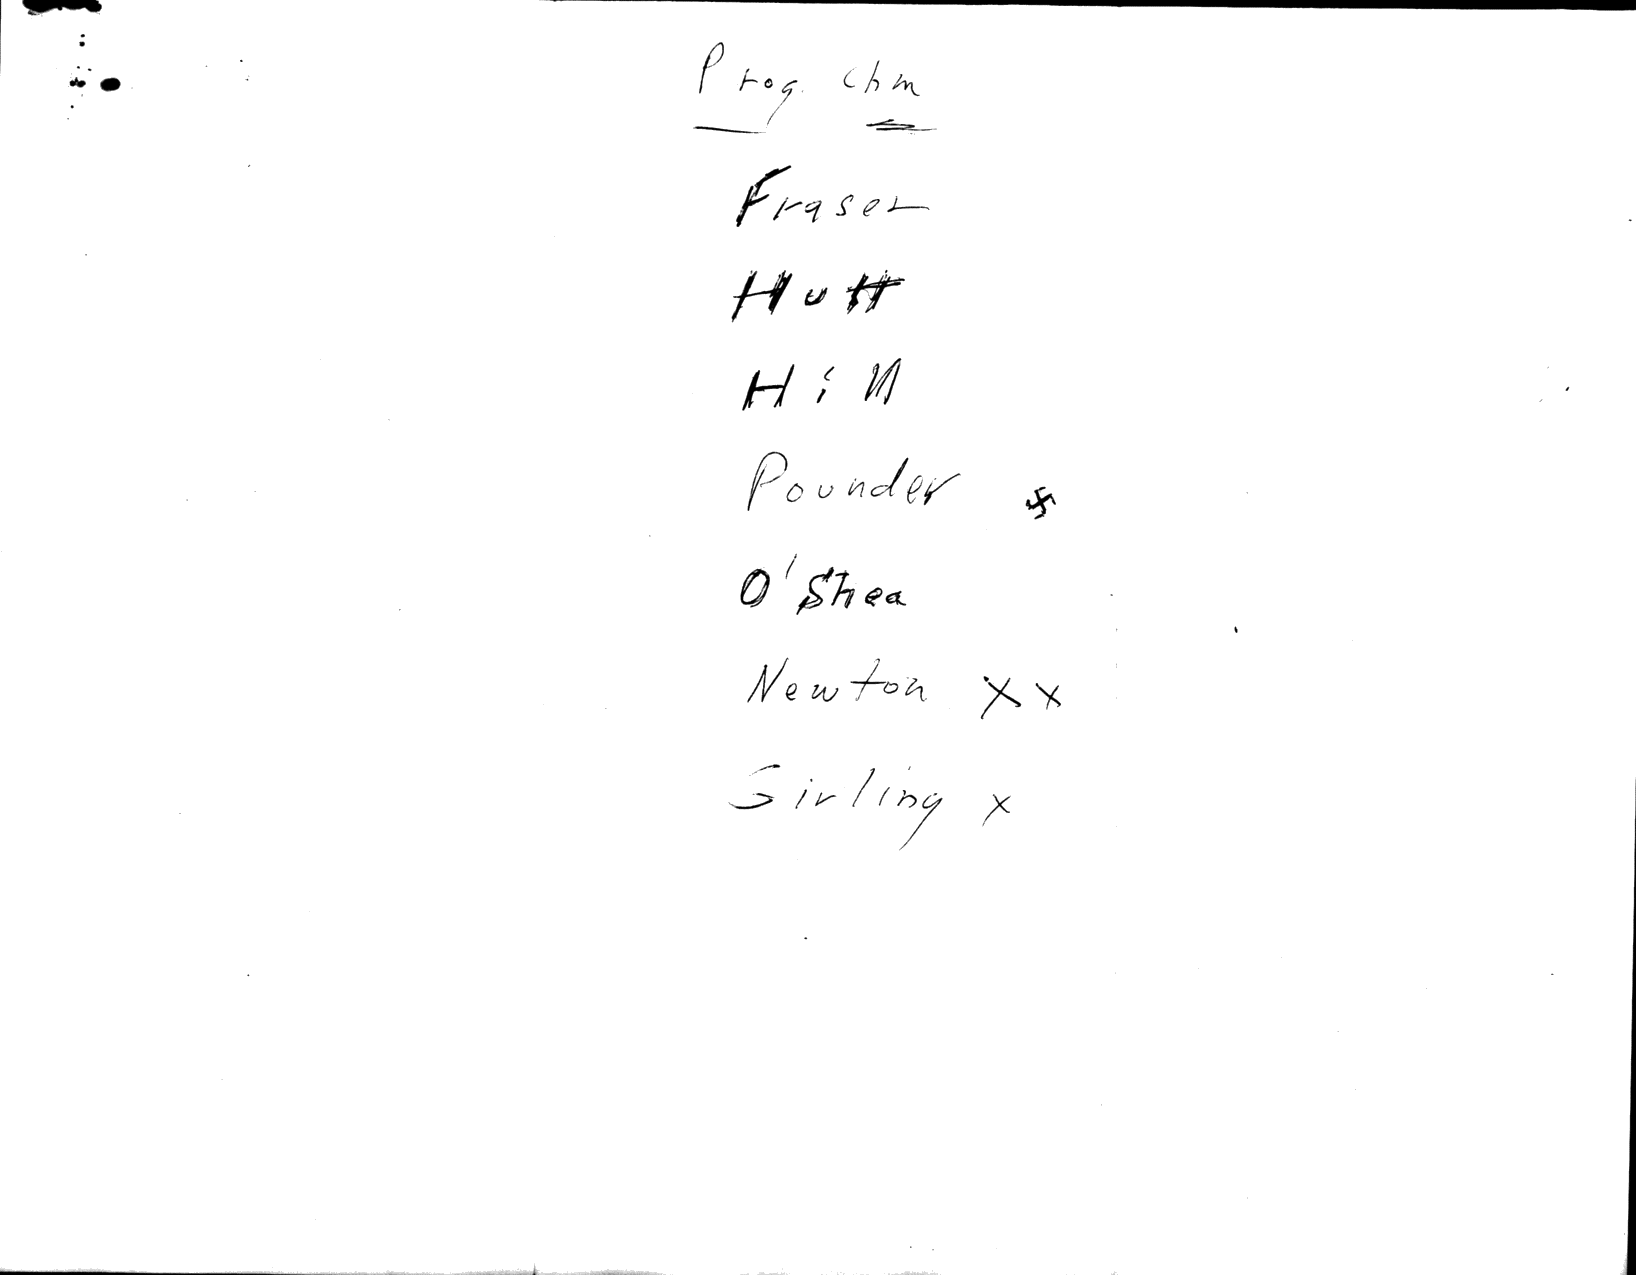 Prog. Chm
Fraser
Hutt
Hill
Pounder 卐
O'Shea
Newton X x
Girling x